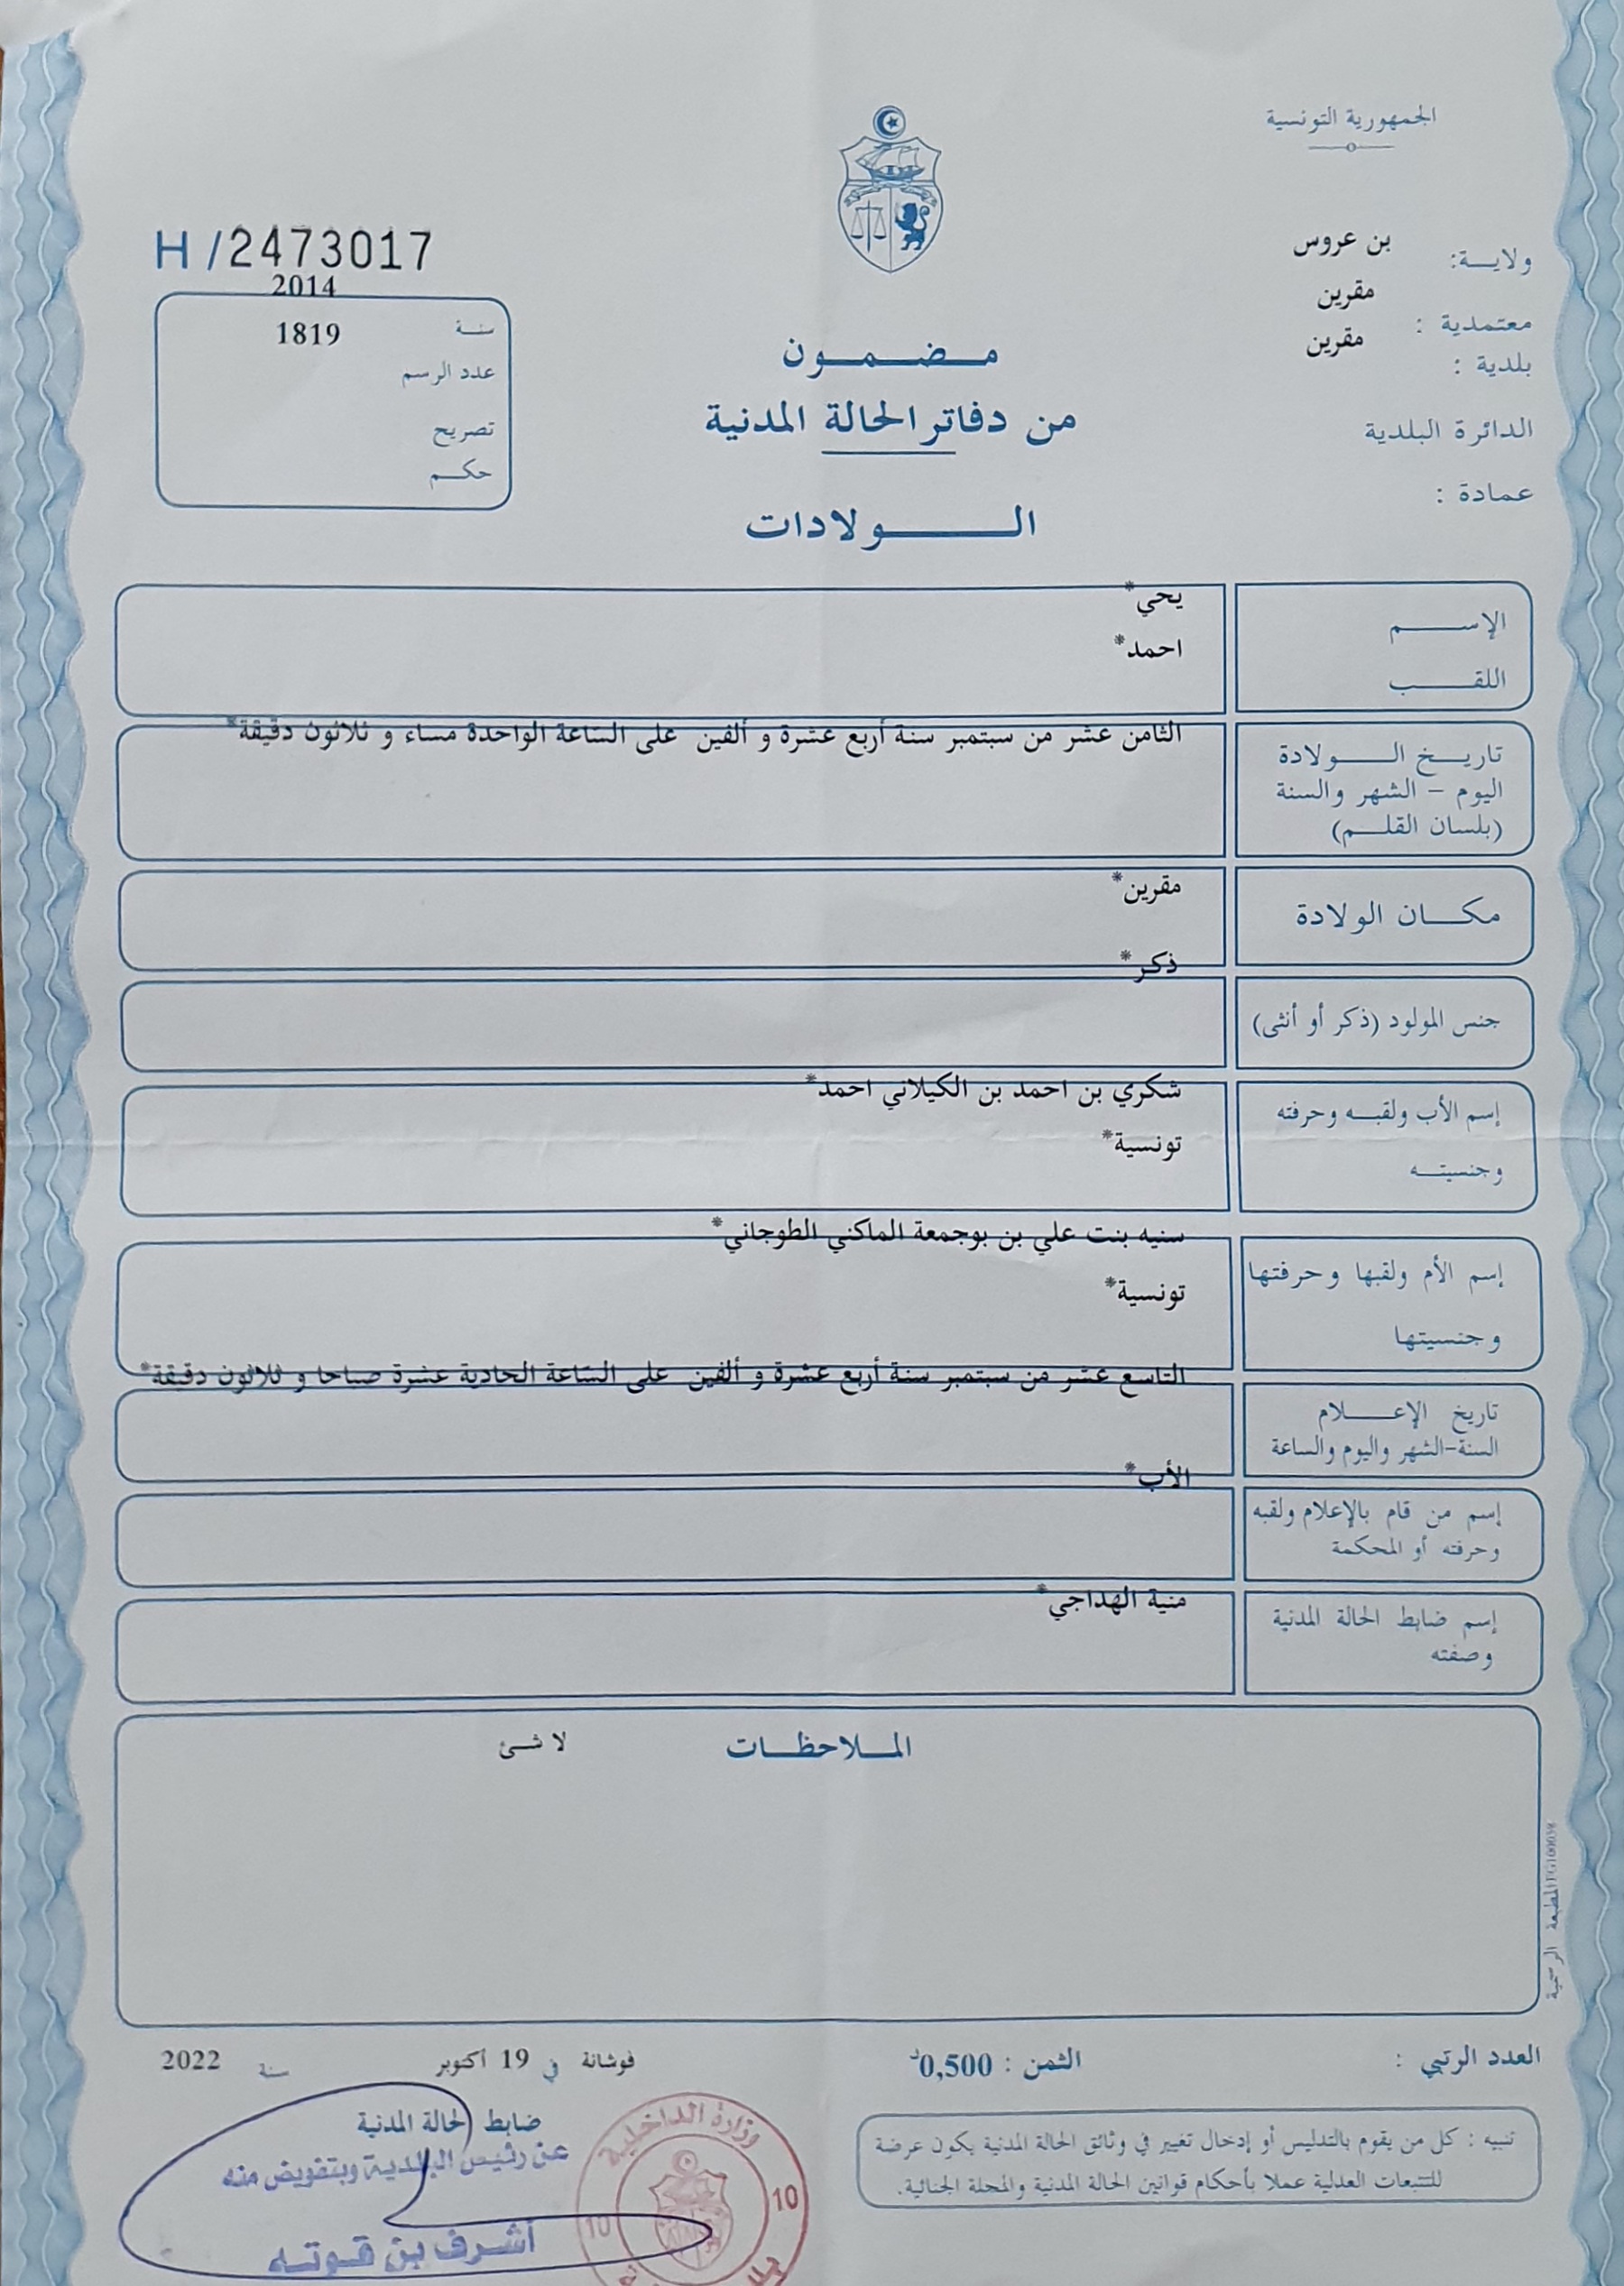 الجمهورية التونسية
ولايـــة: بن عروس
معتمدية : مقرين
بلدية : مقرين
الدائرة البلدية
عمادة :
H /2473017
2014
سنـــة 1819
عدد الرسم
تصريح
حكـــم
مــضــمــون
من دفاتر الحالة المدنية
الـــولادات
الإســـم يحي*
اللقـــب احمد*
تاريـــخ الـــولادة الثامن عشر من سبتمبر سنة أربع عشرة و ألفين على الساعة الواحدة مساء و ثلاثون دقيقة*
اليوم - الشهر والسنة
(بلسان القلـــم)
مكـــان الولادة مقرين*
جنس المولود (ذكر أو أنثى) ذكر*
إسم الأب ولقبـــه وحرفته شكري بن احمد بن الكيلاني احمد*
وجنسيتـــه تونسية*
إسم الأم ولقبها وحرفتها سنيه بنت علي بن بوجمعة الماكني الطوجاني*
وجنسيتها تونسية*
تاريخ الإعـــلام التاسع عشر من سبتمبر سنة أربع عشرة و ألفين على الساعة الحادية عشرة صباحا و ثلاثون دقيقة*
السنة-الشهر واليوم والساعة
إسم من قام بالإعلام ولقبه الأب*
وحرفته أو المحكمة
إسم ضابط الحالة المدنية منية الهداجي*
وصفته
المـــلاحظـــات لا شـــئ
العدد الرتبي :
الثمن : 0,500د
فوشانة في 19 أكتوبر سنـــة 2022
ضابط الحالة المدنية
عن رئيس البلدية وبتفويض منه
أشرف بن قوتـــه
وزارة الداخلية
10
10
تنبيه : كل من يقوم بالتدليس أو إدخال تغيير في وثائق الحالة المدنية يكون عرضة
للتتبعات العدلية عملا بأحكام قوانين الحالة المدنية والمجلة الجنائية.